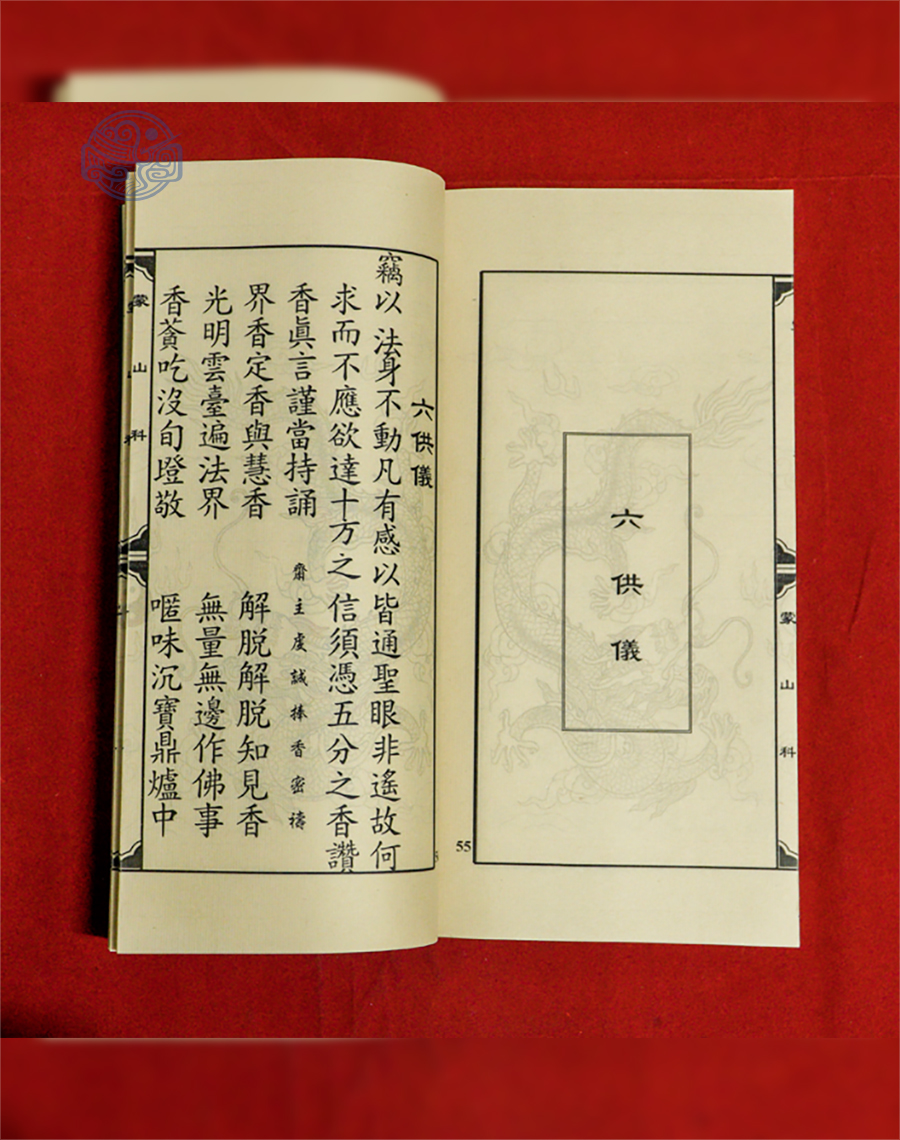 六供儀
蒙山科
55
六供儀
竊以法身不動凡有感以皆通聖眼非遙故何
求而不應欲達十方之信須憑五分之香讚
香眞言謹當持誦 齋主虔誠捧香密禱
界香定香與慧香 解脱解脱知見香
光明雲臺遍法界 無量無邊作佛事
香薈吃沒旬璒敬 噁味沉寶鼎爐中
蒙山科